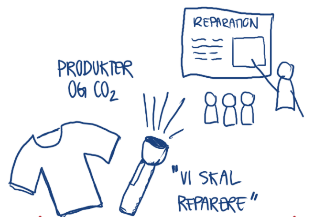 REPARATION
PRODUKTER
OG CO2
"VI SKAL
REPARERE"